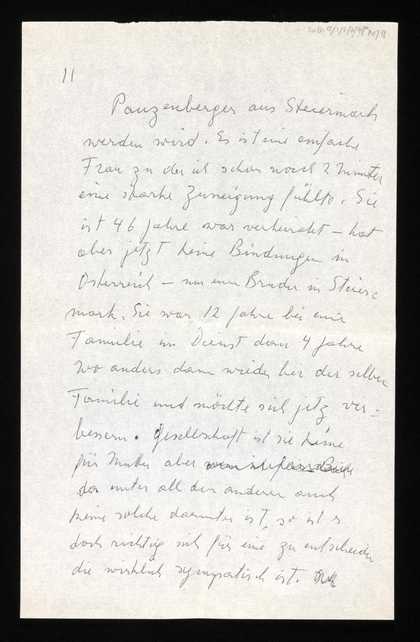 11
Panzenberger aus Steiermark
werden wird. Es ist eine einfache
Frau zu der ich schon nach 2 Minuten
eine starke Zuneigung fühlte. Sie
ist 46 Jahre war verheiratet – hat
aber jetzt keine Bindungen in
Österreich – nur einen Bruder in Steier-
mark. Sie war 12 Jahre bei einer
Familie im Dienst dann 4 Jahre
wo anders dann wieder bei der selben
Familie und möchte sich jetz ver-
bessern. Gesellschaft ist sie keine
für Mutter aber
da unter all den anderen auch
keine solche darunter ist, so ist es
doch richtig sich für eine zu entscheiden
die wirklich sympatisch ist.